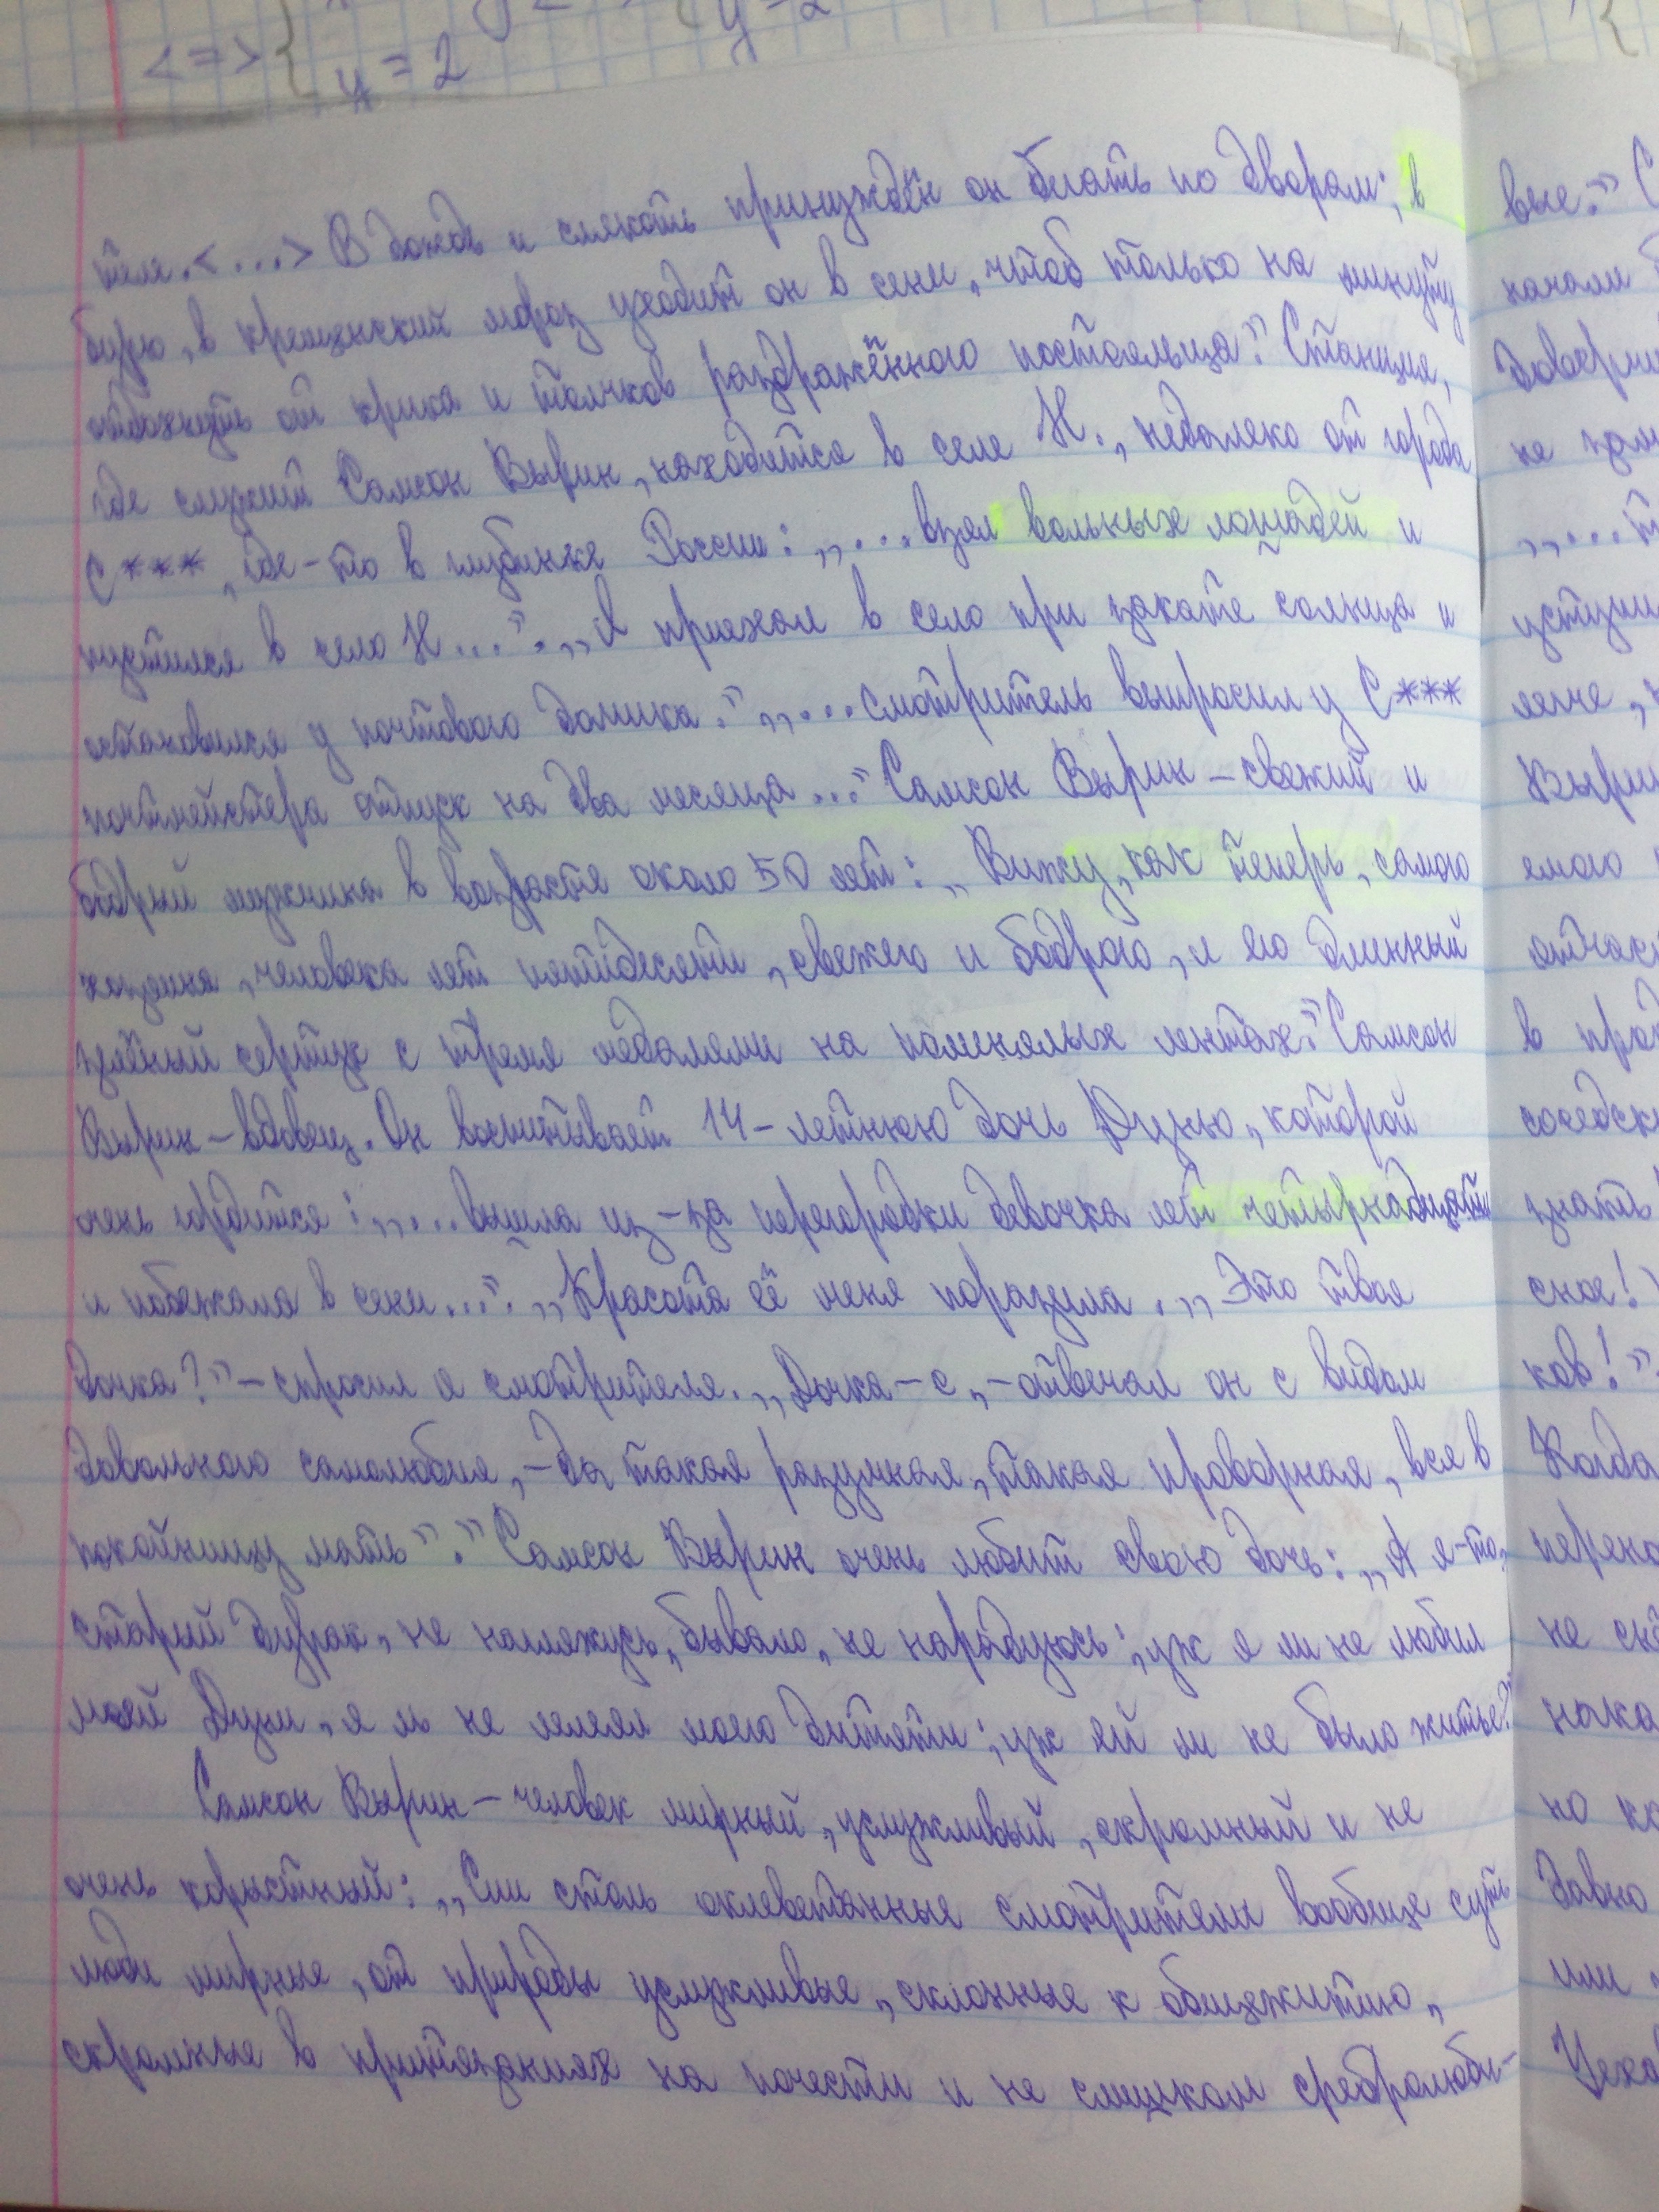 <=> { y = 2
y = 2
теле. <...> В дождь и слякоть принуждён он бегать по дворам; в
бурю, в крещенский мороз уходит он в сени, чтоб только на минуту
отдохнуть от крика и толчков раздражённого постояльца." Станция,
где служит Самсон Вырин, находится в селе Н., недалеко от города
С***, где-то в глубинке России: „...взял вольных лошадей и
пустился в село Н...". „Я приехал в село при закате солнца и
остановился у почтового домика." „...смотритель выпросил у С***
почтмейстера отпуск на два месяца..." Самсон Вырин – свежий и
бодрый мужчина в возрасте около 50 лет: „Вижу, как теперь, самого
хозяина, человека лет пятидесяти, свежего и бодрого, и его длинный
зелёный сертук с тремя медалями на полинялых лентах." Самсон
Вырин – вдовец. Он воспитывает 14-летнюю дочь Дуню, которой
очень гордится: „...вышла из-за перегородки девочка лет четырнадцати
и побежала в сени...". „Красота её меня поразила. „Это твоя
дочка?" – спросил я смотрителя. „Дочка-с, – отвечал он с видом
довольного самолюбия, – да такая разумная, такая проворная, вся в
покойницу мать"." Самсон Вырин очень любит свою дочь: „А я-то,
старый дурак, не нагляжусь, бывало, не нарадуюсь; уж я ли не любил
моей Дуни, я ль не лелеял моего дитяти; уж ей ли не было житье?"
Самсон Вырин – человек мирный, услужливый, скромный и не
очень корыстный: „Сии столь оклеветанные смотрители вообще суть
люди мирные, от природы услужливые, склонные к общежитию,
скромные в притязаниях на почести и не слишком сребролюби-
вые." С
начали
довери
не
„...т
уступи
легче,
Вырин
емого
отчас
в
соседск
знать
сное!
ков!"
Когда
перено
не
нака
но ко
давно
или
Уеха